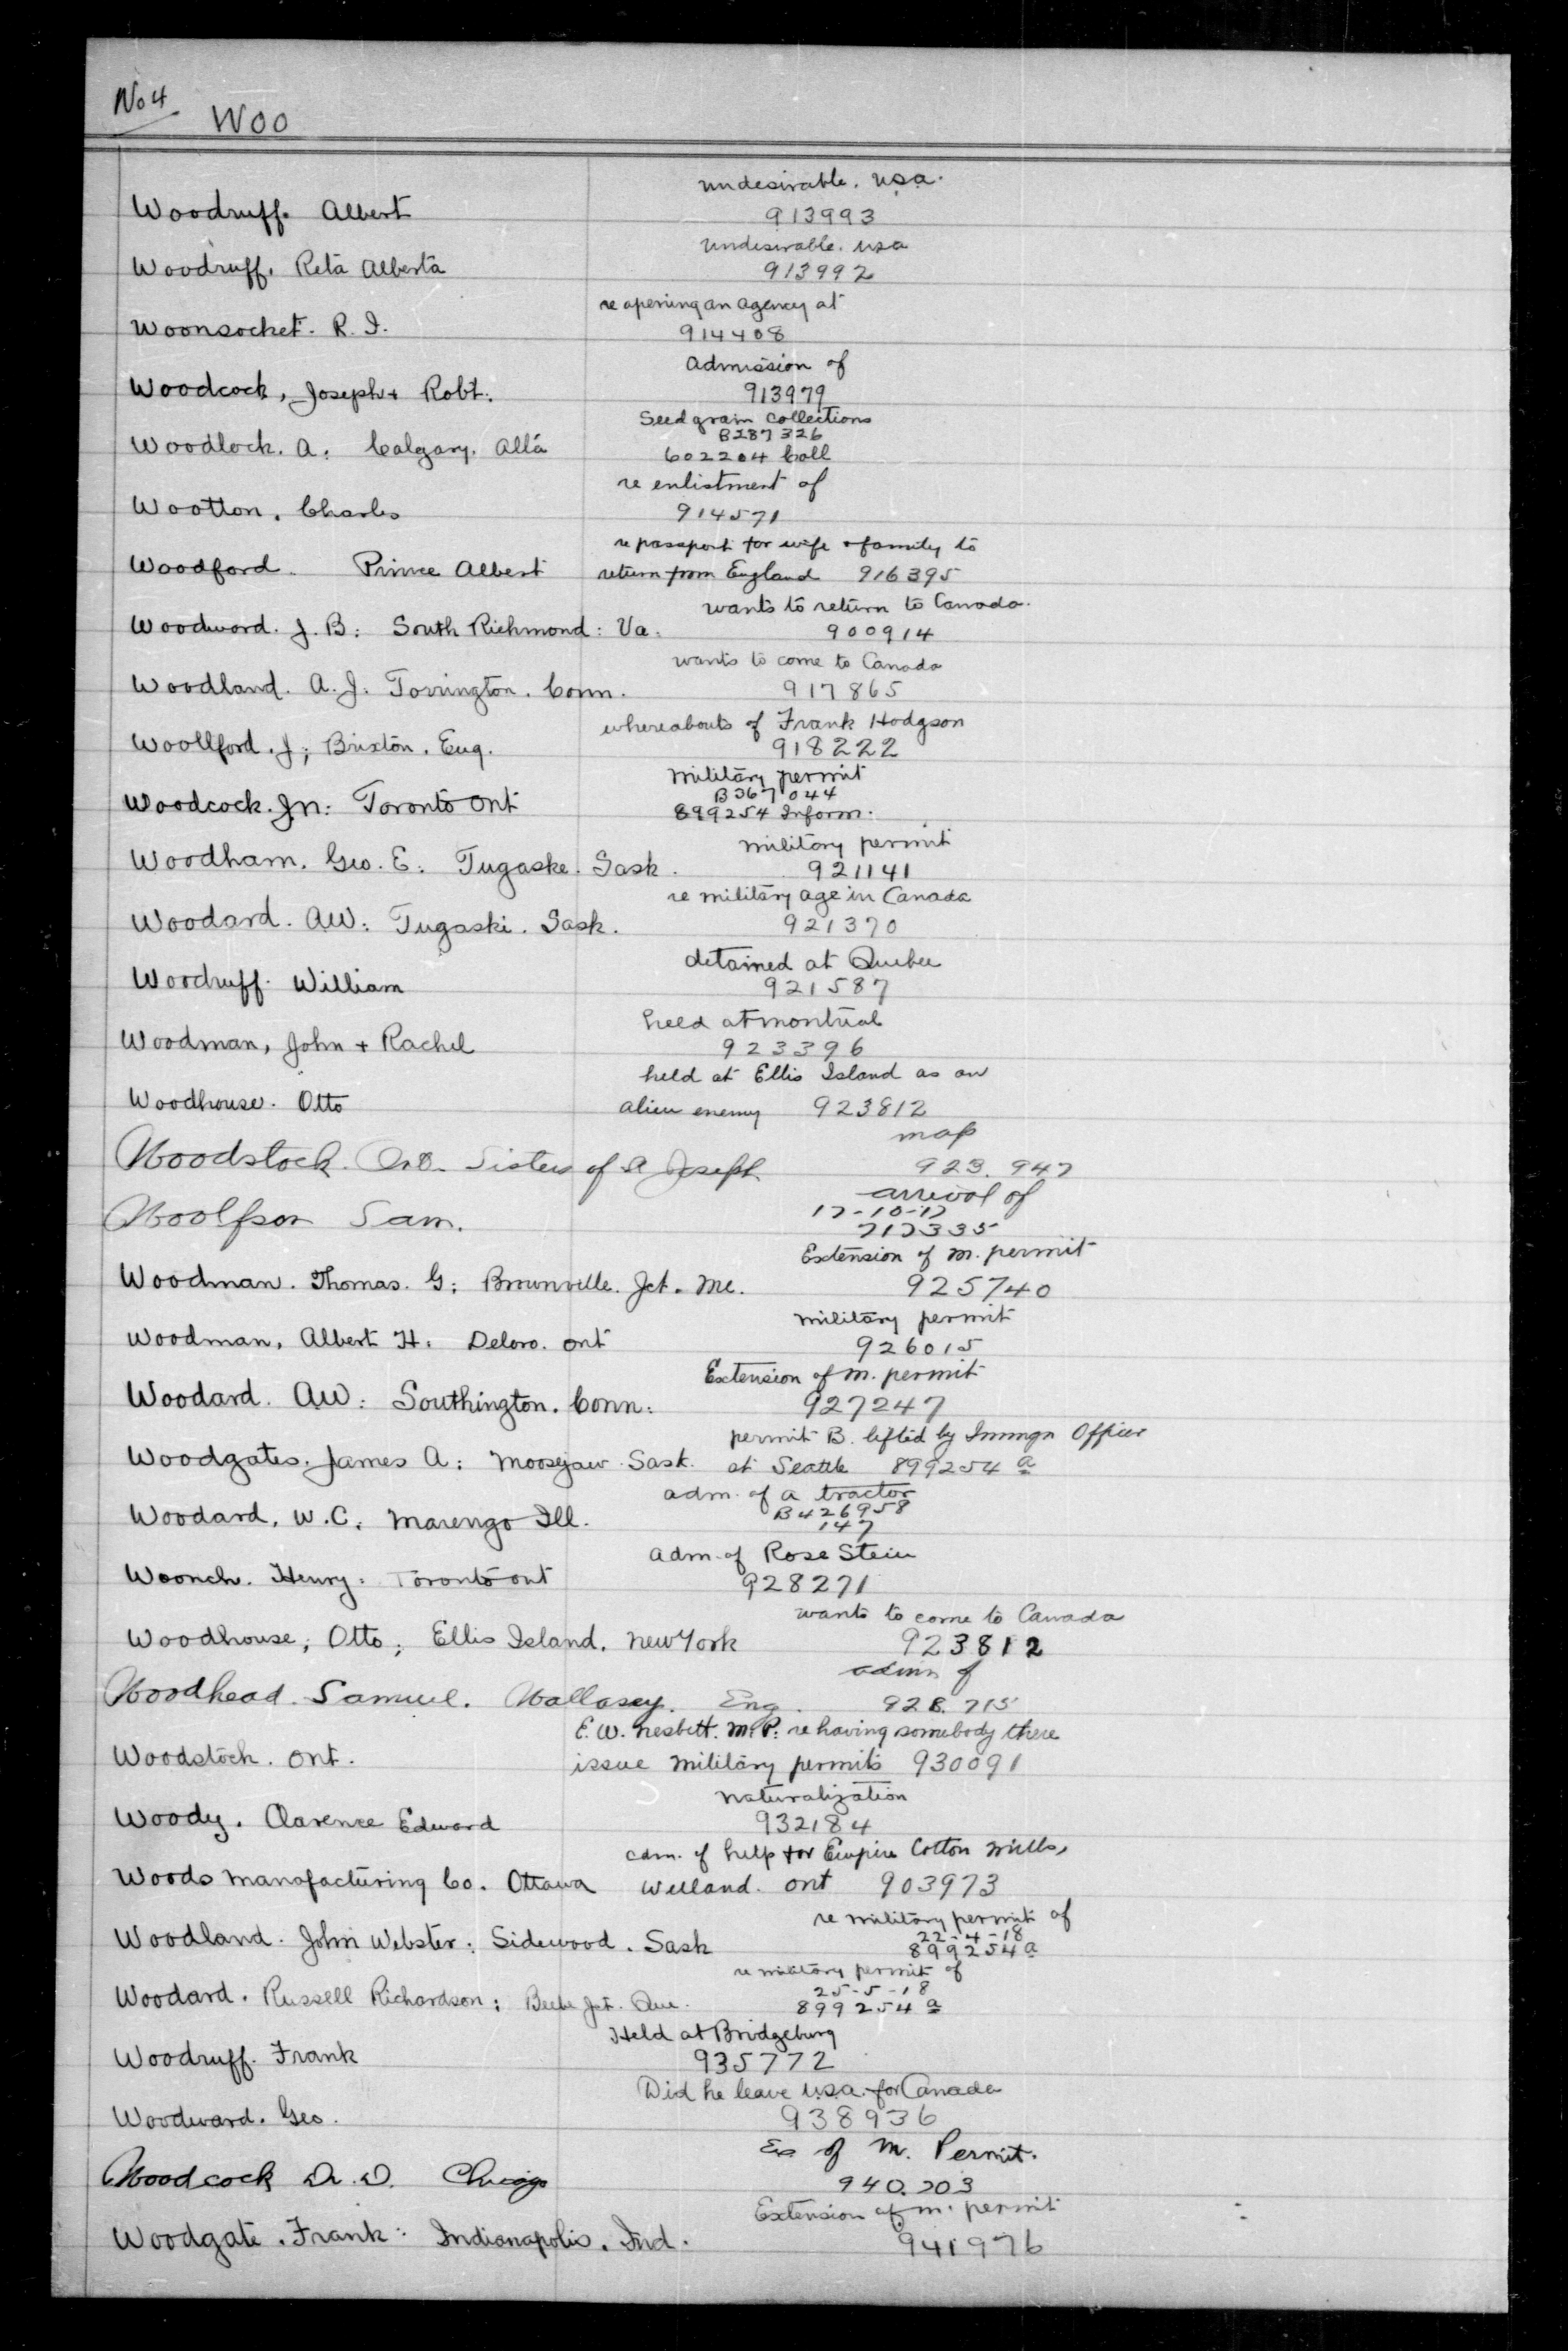 No 4
Woo
undesirable. usa.
Woodruff. Albert
913993
undesirable. usa
Woodruff. Reta Alberta
913992
re opening an agency at
Woonsocket. R. I.
914408
Admission of
Woodcock, Joseph + Robt.
913979
Seed grain collections
B287326
Woodlock. A. Calgary. Alta
602204 Coll
re enlistment of
Wootton. Charles
914571
re passport for wife + family to
Woodford. Prince Albert return from England 916395
wants to return to Canada.
Woodward. J. B: South Richmond: Va.
900914
wants to come to Canada
Woodland. A. J. Torrington. Conn.
917865
whereabouts of Frank Hodgson
Woollford. J; Brixton. Eng.
918222
military permit
B367044
Woodcock. Jn: Toronto Ont
899254 Inform.
military permit
Woodham. Geo. E: Tugaske. Sask.
921141
re military age in Canada
Woodard. AW: Tugaski. Sask.
921370
detained at Quebec
Woodruff. William
921587
held at montreal
Woodman, John + Rachel
923396
held at Ellis Island as an
Woodhouse. Otto alien enemy 923812
map
Woodstock. Ont. Sisters of St Joseph 923.947
arrival of
17-10-17
Woolfson Sam.
717335
Extension of m. permit
Woodman. Thomas. G: Brownville. Jct. Me.
925740
military permit
Woodman, Albert H: Deloro. ont
926015
Extension of m. permit
Woodard. AW: Southington. Conn:
927247
permit B. lifted by Immgn Officer
Woodgates. James A: Moosejaw. Sask. at Seattle 899254 a
adm. of a tractor
B426958
Woodard, W.C. Marengo Ill.
147
adm. of Rose Stein
Woonch. Henry: Toronto ont
928271
wants to come to Canada
Woodhouse; Otto; Ellis Island. New York
923812
admn of
Woodhead. Samuel. Wallasey. Eng. 928.715
E. W. Nesbitt. M.P: re having somebody there
Woodstock. Ont. issue military permits 930091
naturalization
Woody. Clarence Edward
932184
adm. of help for Empire Cotton Mills,
Woods Manafacturing Co. Ottawa Welland. ont 903973
re military permit of
22-4-18
Woodland. John Webster: Sidewood. Sask
899254 a
re military permit of
25-5-18
Woodard. Russell Richardson; Beebe Jct. Que.
899254 a
Held at Bridgeburg
Woodruff. Frank
935772
Did he leave usa. for Canada
Woodward. Geo.
938936
Ex of M. Permit.
Woodcock D. Chicago
940.203
Extension of m. permit
Woodgate. Frank: Indianapolis. Ind.
941976